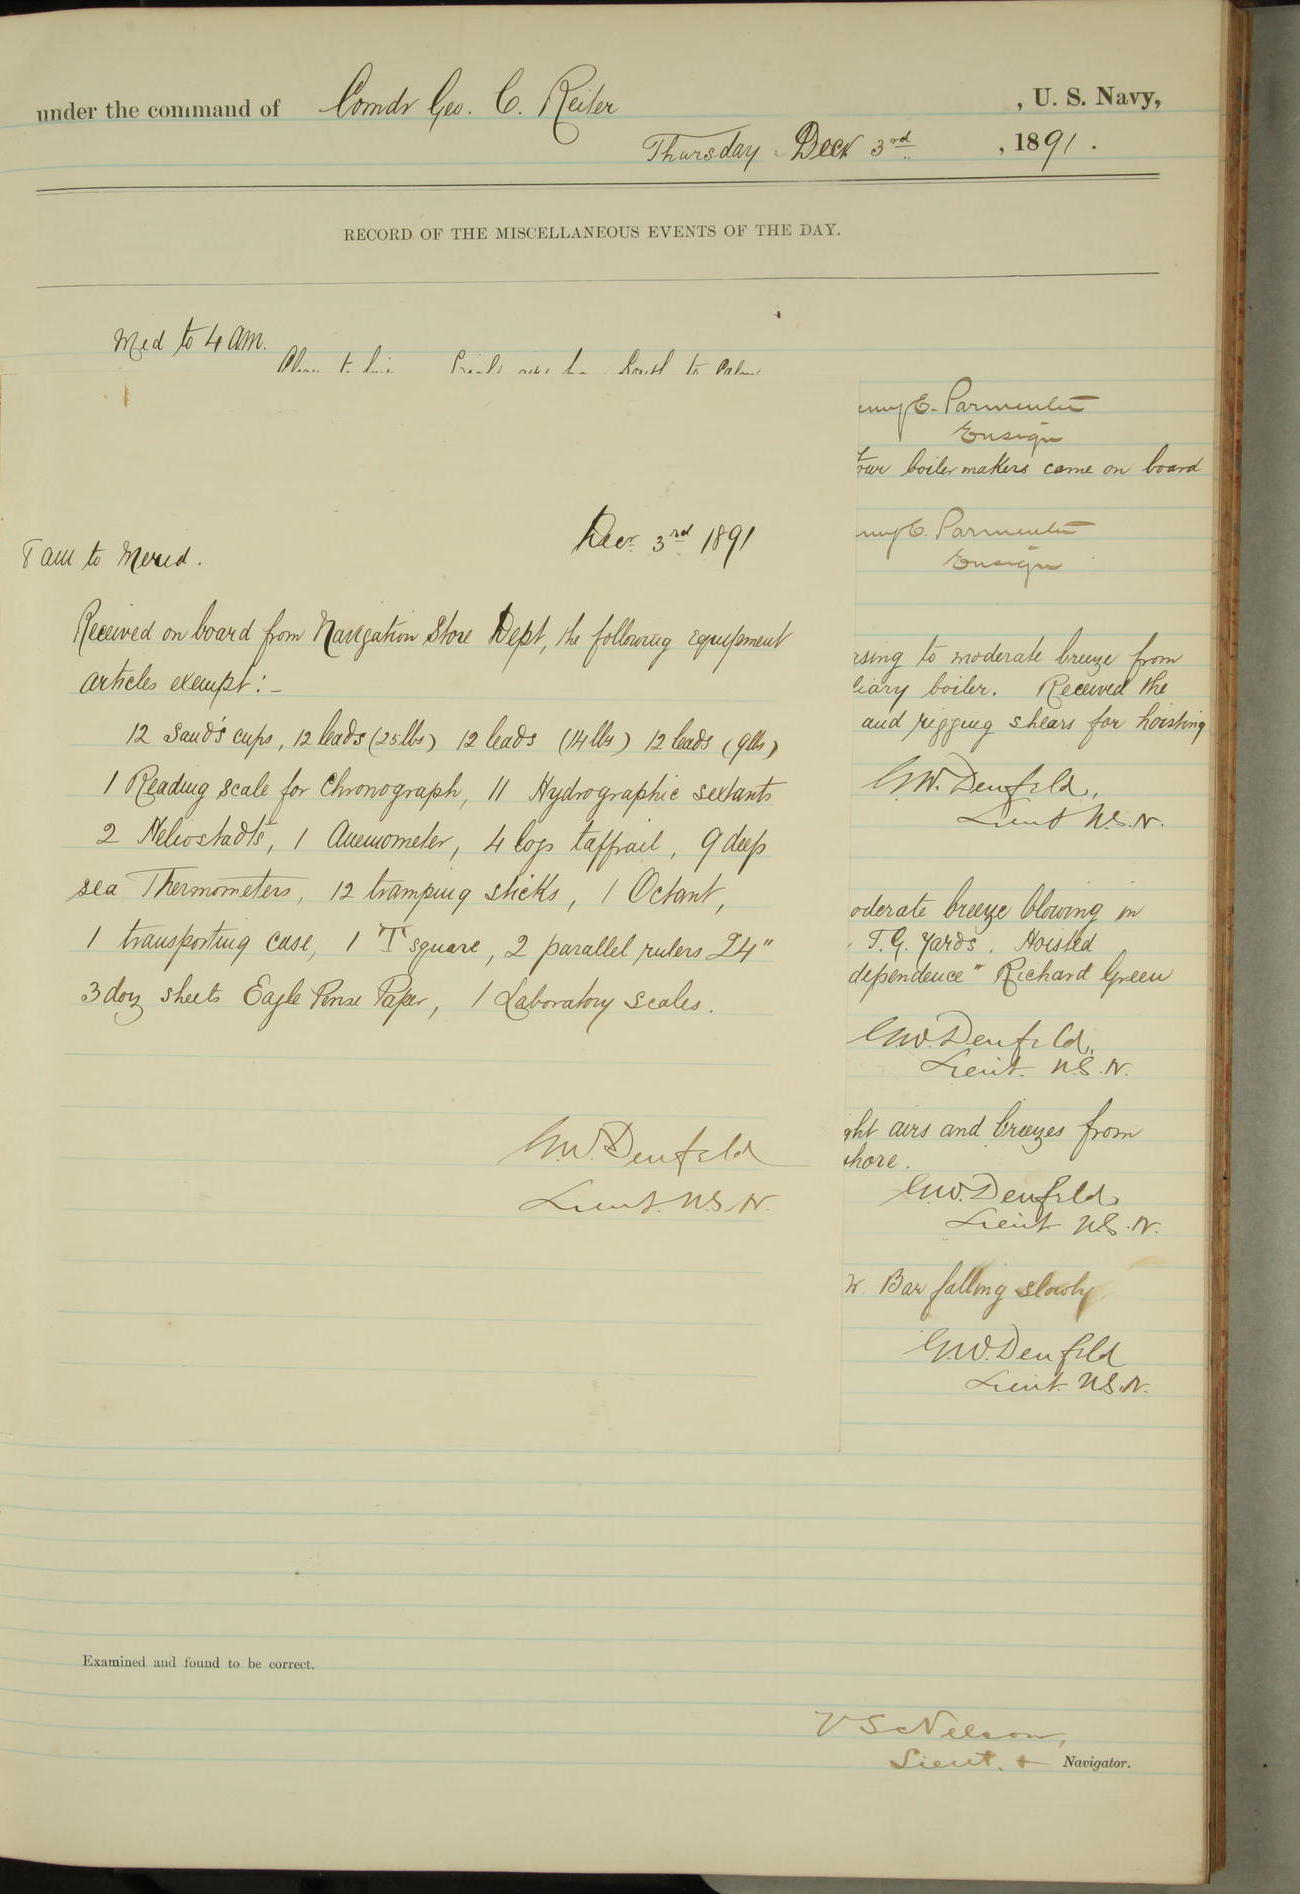 under the command of Comdr Geo. C. Reiter , U. S. Navy,
Thursday Decr 3rd , 1891 .
RECORD OF THE MISCELLANEOUS EVENTS OF THE DAY.
Mid to 4 am.
airs South to
E. Parmenter
Ensign
boiler makers came on board
Decr 3rd 1891
E. Parmenter
8 am to Merid.
Ensign
Received on board from Navigation Store Dept, the following equipment
articles exempt:-
to moderate breeze from
boiler. Received the
and rigging shears for hoisting
12 Sand's cups, 12 leads (25 lbs) 12 leads (14 lbs) 12 leads (9 lbs)
1 Reading scale for Chronograph, 11 Hydrographic sextants
G.W. Denfeld,
Lieut U.S.N.
2 Heliostadts, 1 Anemometer, 4 logs taffrail, 9 deep
sea Thermometers, 12 tramping sticks, 1 Octant,
breeze blowing in
1 transporting case, 1 T square, 2 parallel rulers 24"
T.G. Yards. Hoisted
3 doz sheets Eagle Pense Paper, 1 Laboratory scales.
dependence" Richard Green
G.W. Denfeld,
Lieut. U.S.N.
airs and breezes from
G.W. Denfeld
Lieut. U.S.N.
G.W. Denfeld
Lieut U.S.N.
Bar falling slowly
G.W. Denfeld
Lieut. U.S.N.
Examined and found to be correct.
V S Nelson,
Lieut. + Navigator.